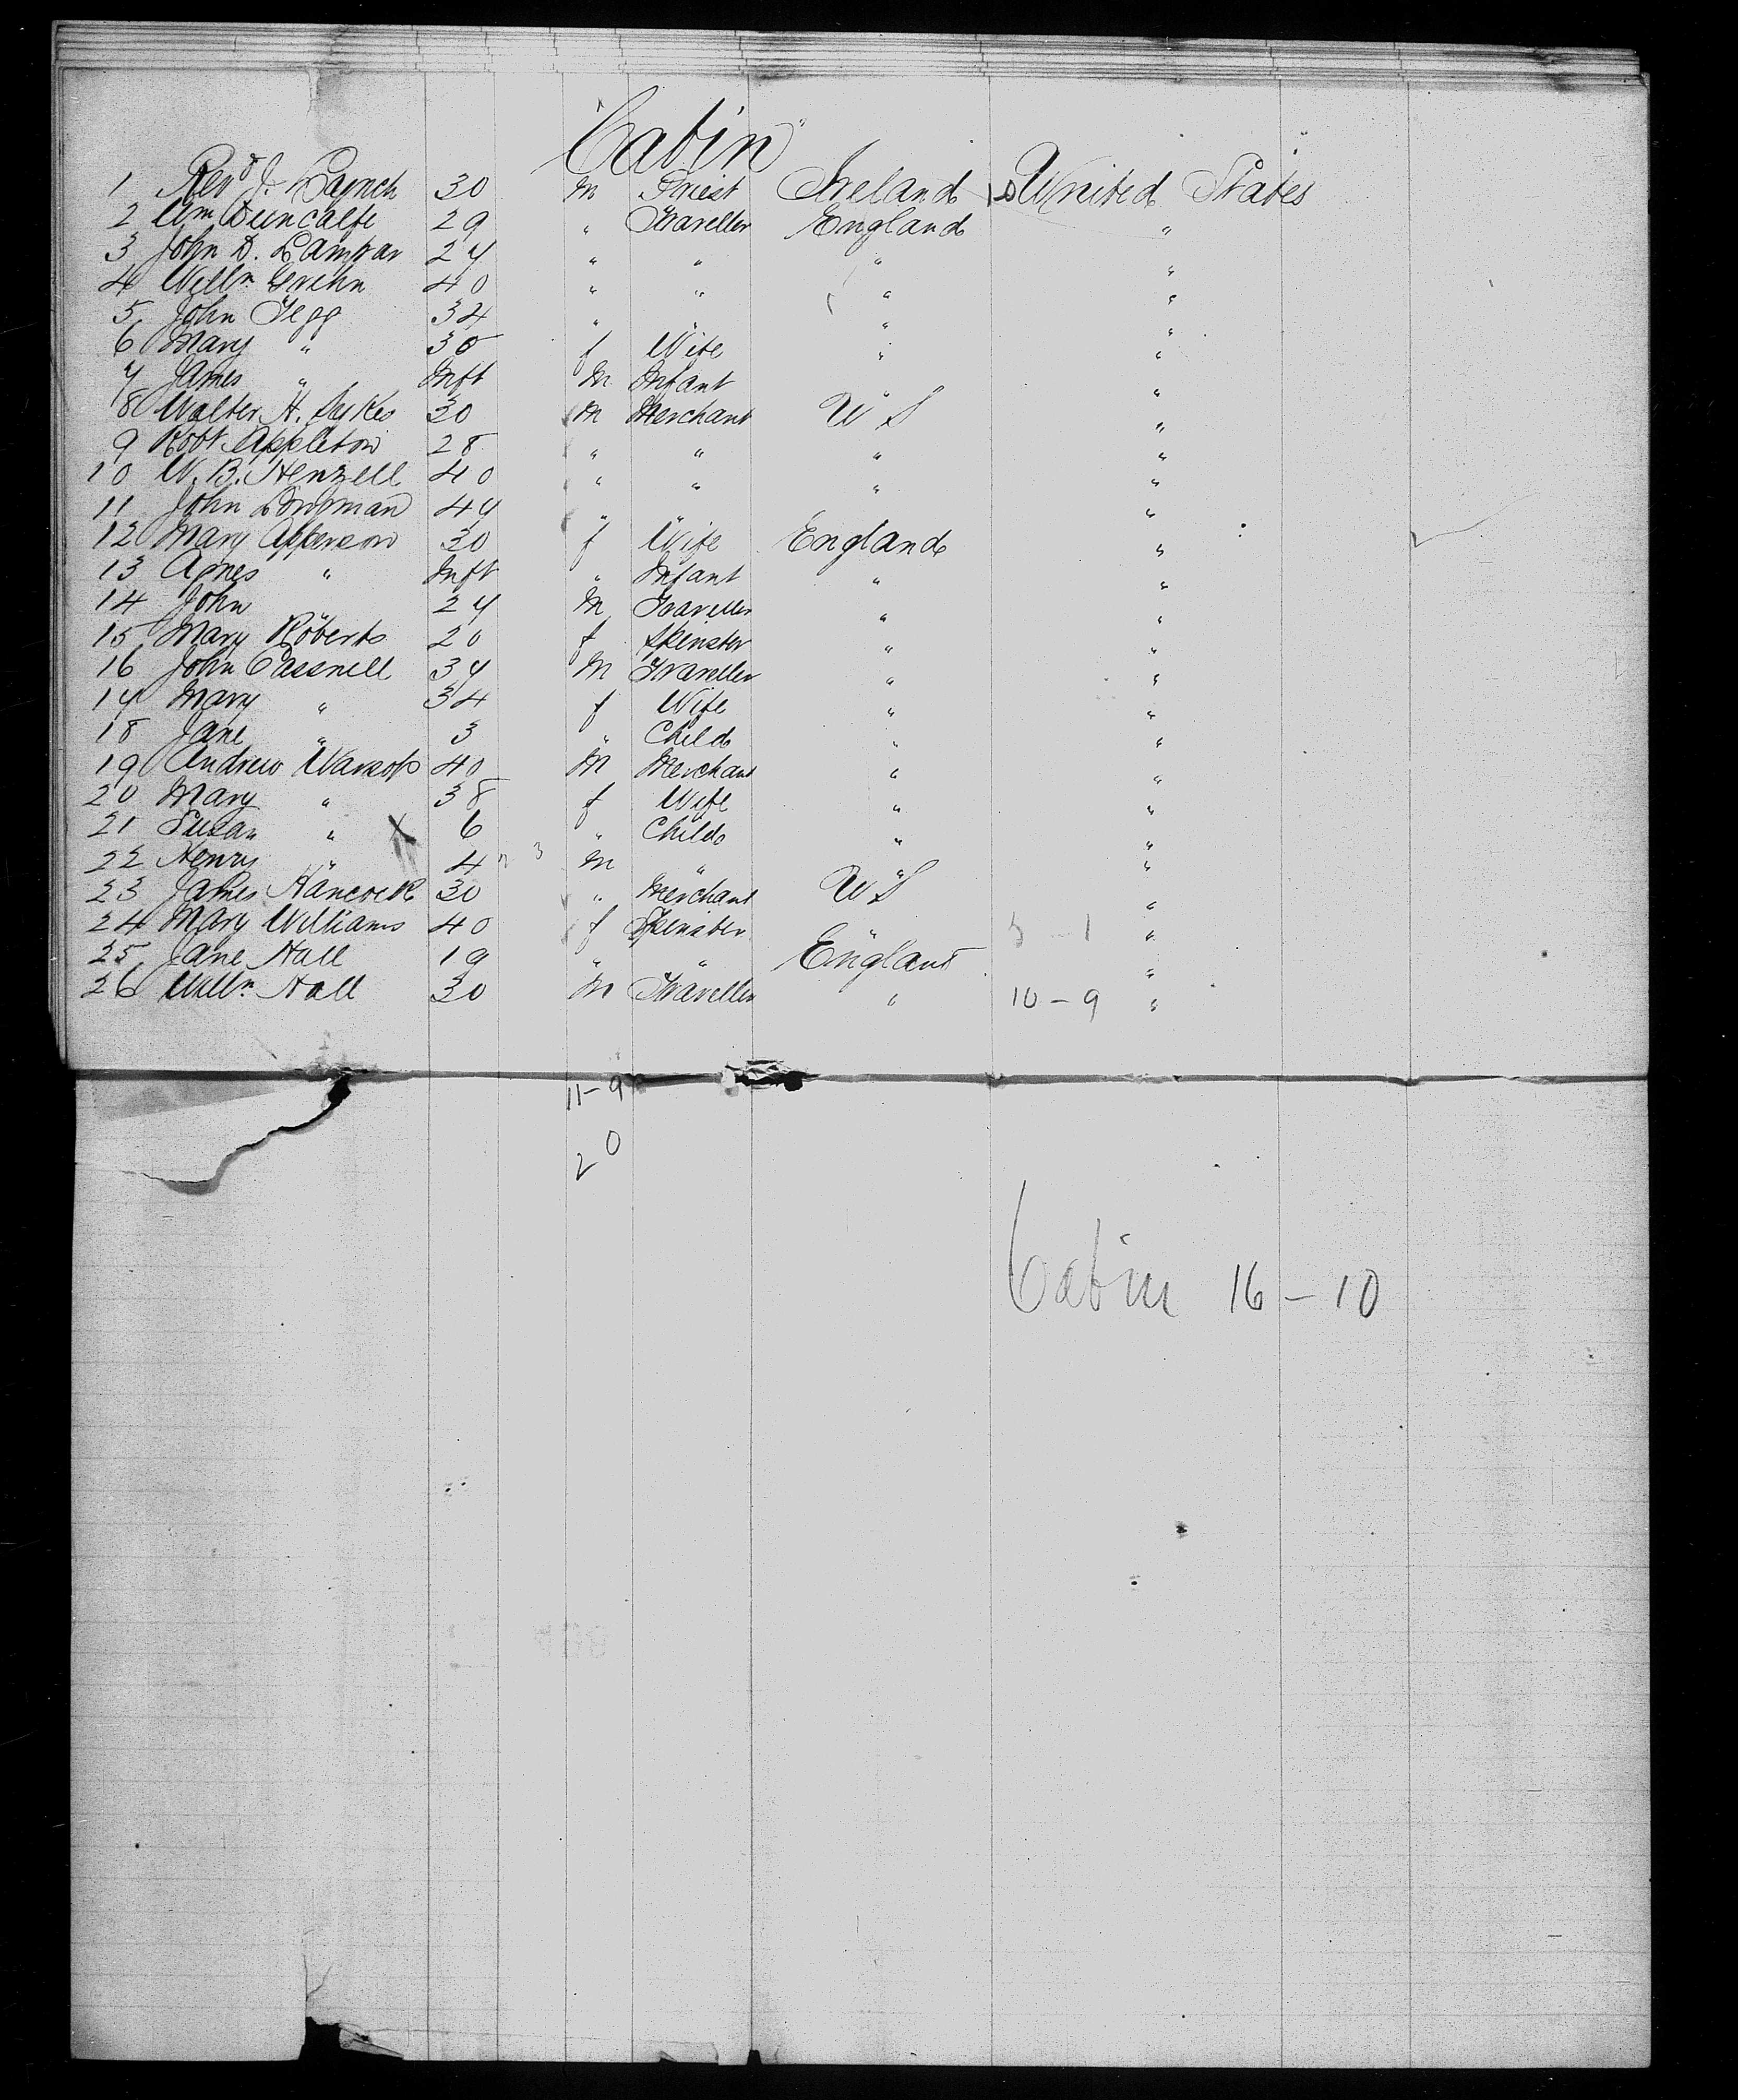 "Cabin"
1 Revd J. Lynch 30 m Priest Ireland United States
2 Wm Duncalfe 29 " Traveller England "
3 John D. 27 " " " "
4 Willm 40 " " " "
5 John Tegg 34 " " " "
6 Mary " 30 f Wife " "
7 James " Inft M Infant " "
8 Walter H. Sykes 30 M Merchant U S "
9 Robt Appleton 28 " " " "
10 W. B. Henzell 40 " " " "
11 John Bowman 47 " " " "
12 Mary Apperson 30 f Wife England "
13 Agnes " Inft " Infant " "
14 John " 27 M Traveller " "
15 Mary Roberts 20 f Spinster " "
16 John Cassnell 37 M Traveller " "
17 Mary " 34 f Wife " "
18 Jane " 3 " Child " "
19 Andrew Warsop 40 M Merchant " "
20 Mary " 38 f Wife " "
21 Susan " X 6 " Child " "
22 Henry " 4 M " " "
23 James Hancock 30 " Merchant U S "
24 Mary Williams 40 f Spinster " "
25 Jane Hall 19 " " England "
26 Willm Hall 30 M Traveller " 10-9 "
11-9
20
Cabin 16-10